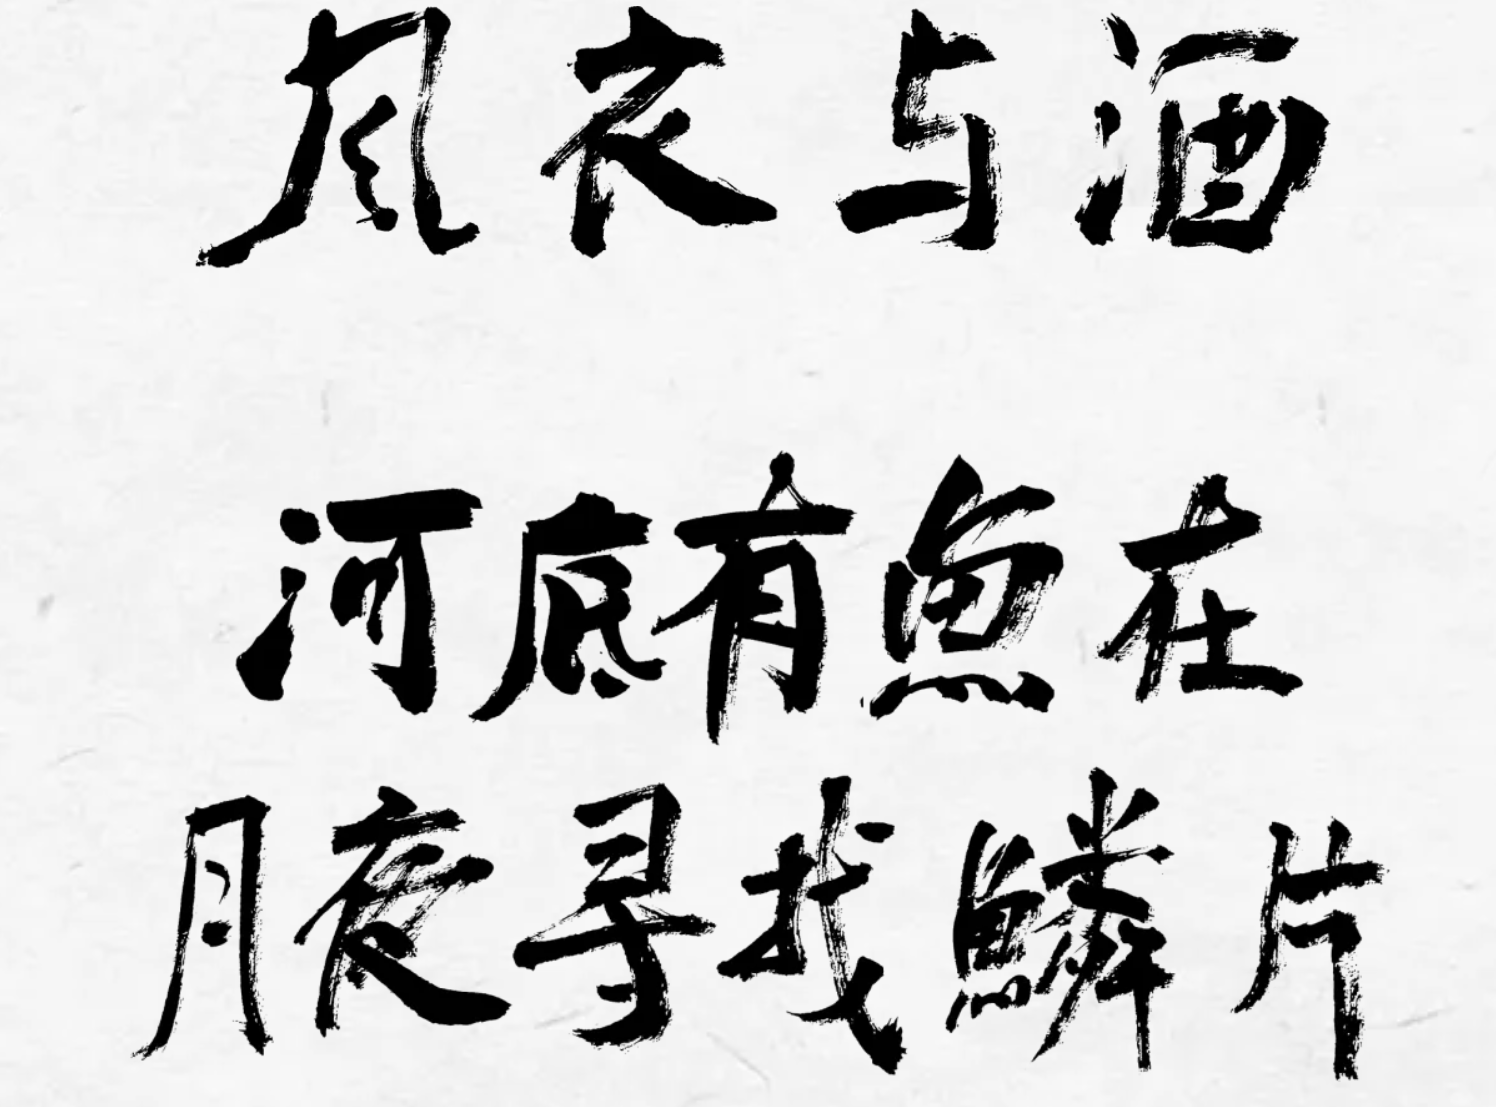 风衣与酒
河底有鱼在
月夜寻找鳞片